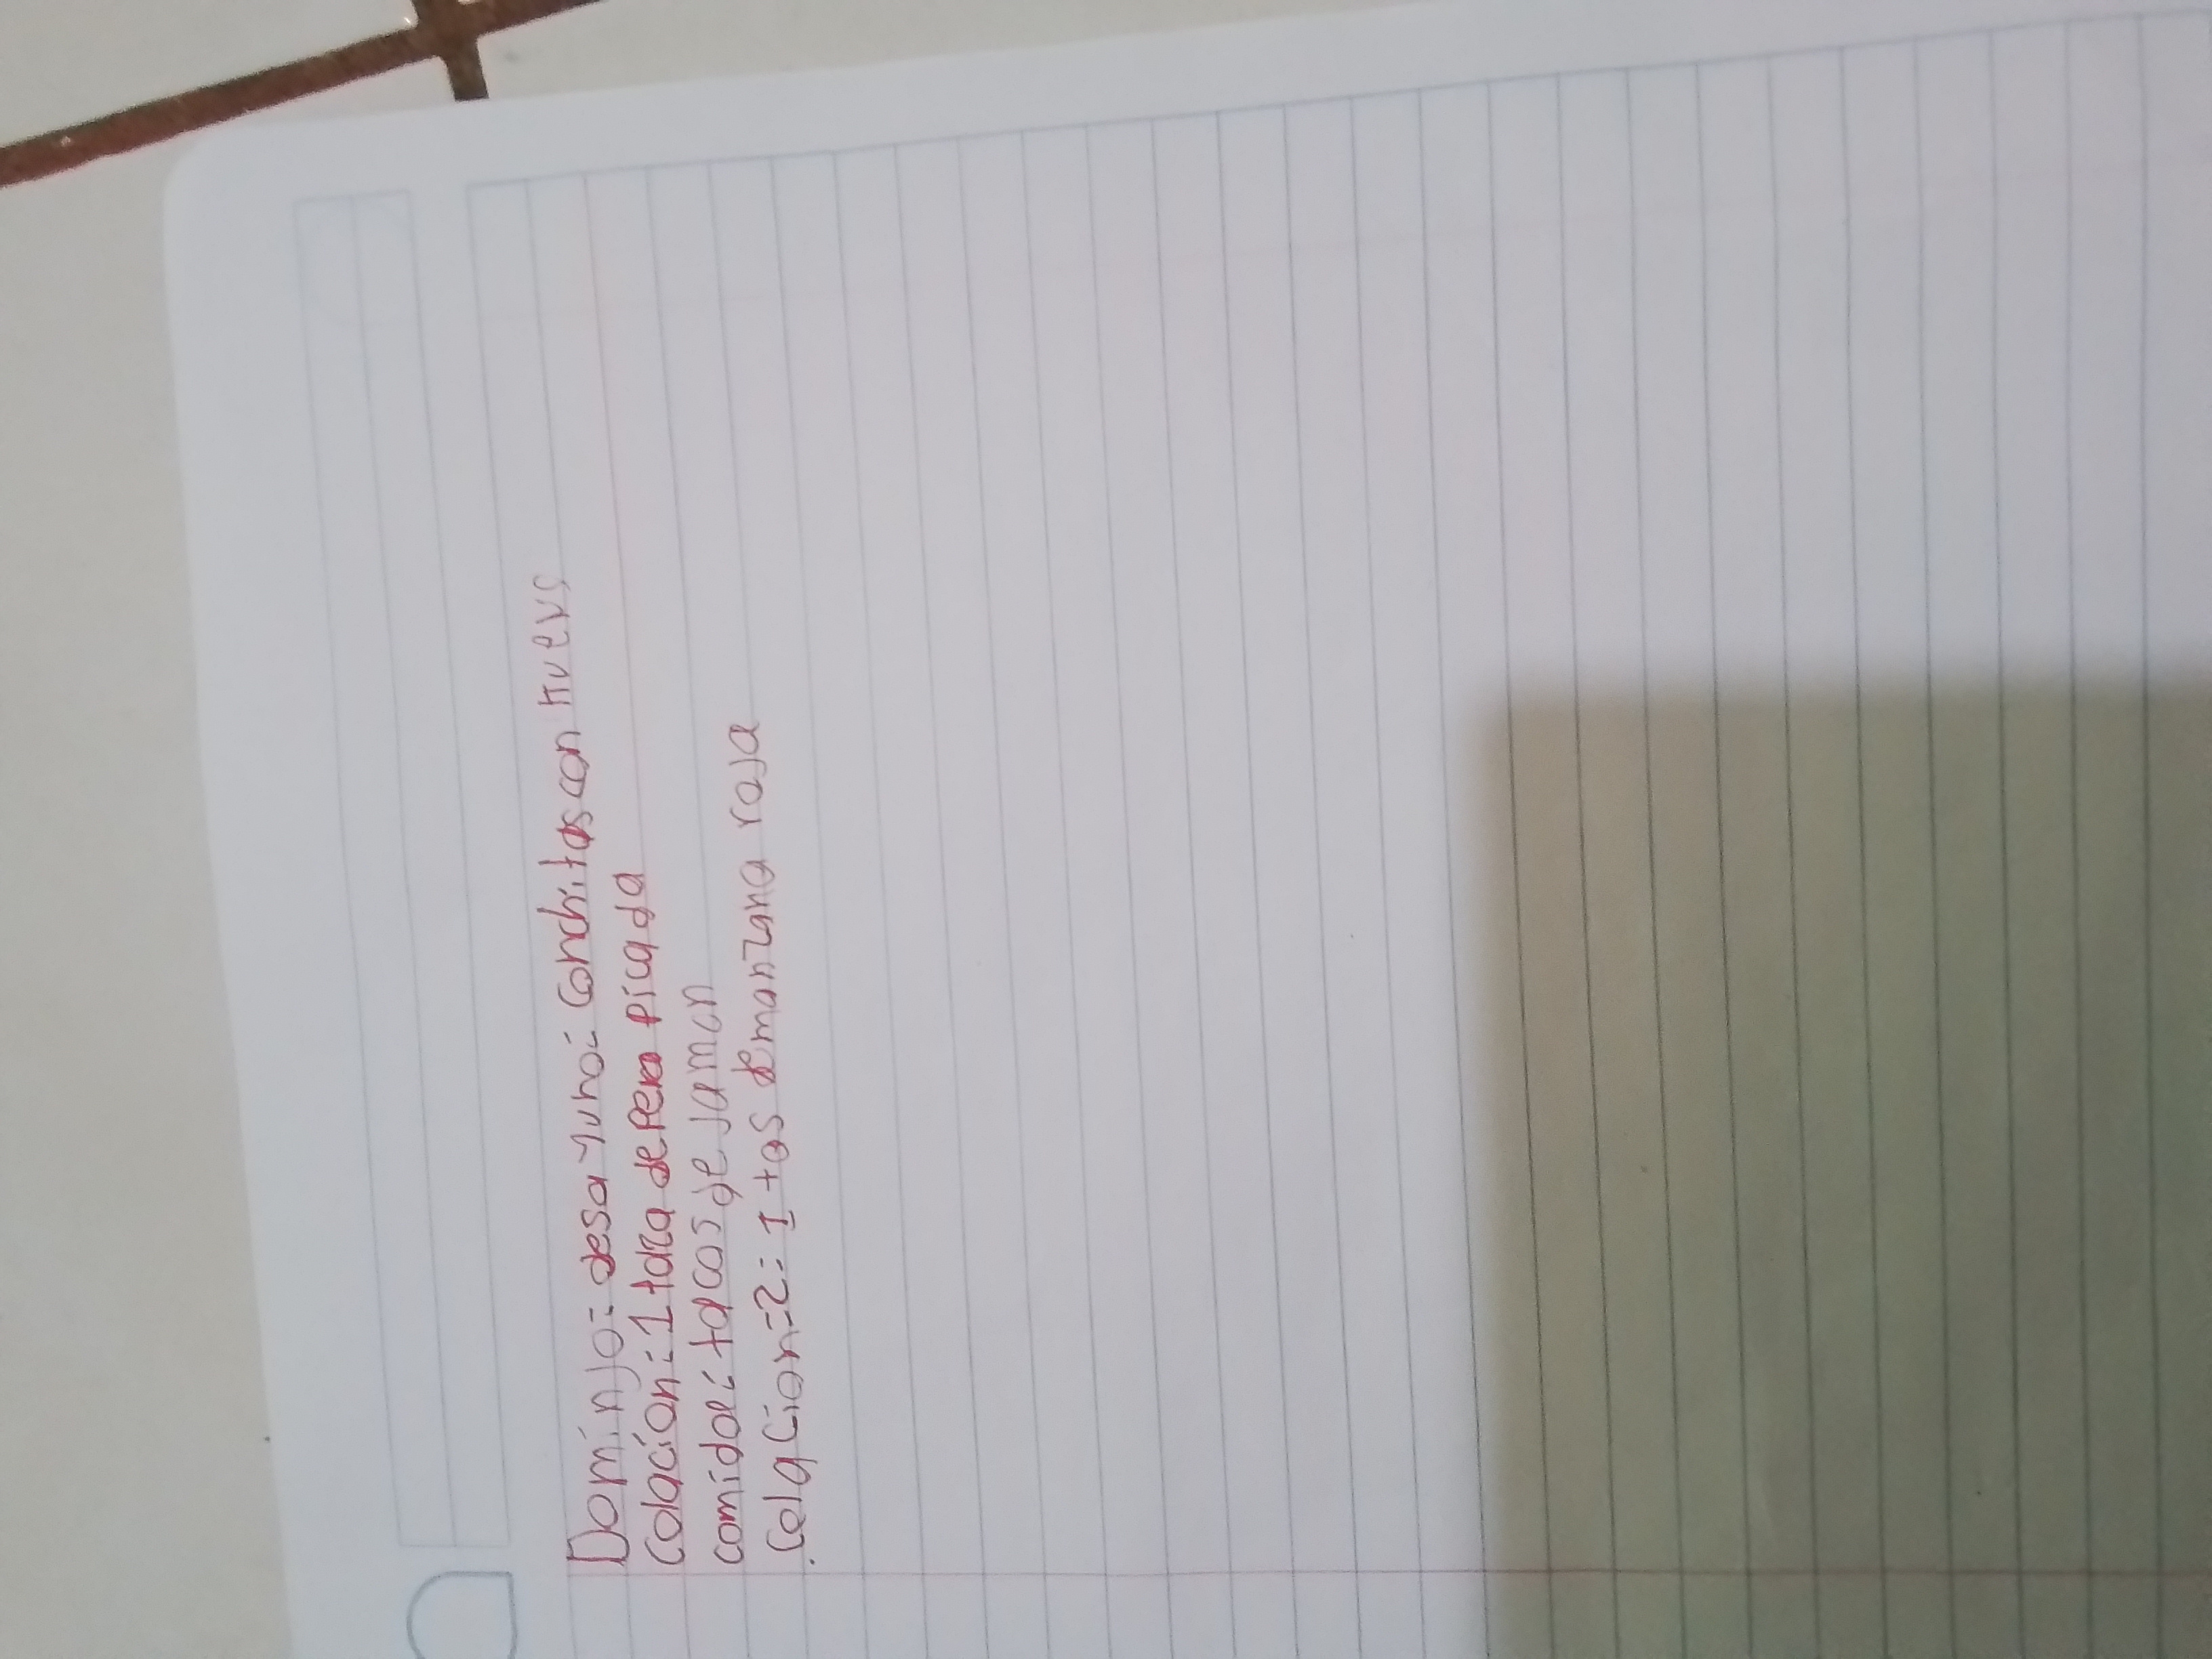 Dominjo: desayuno: Conchitas con Huevo
Colación: 1 taza de Pera picada
comida: tacos de jamon
Colacion=2: 1 tas de manzana roja